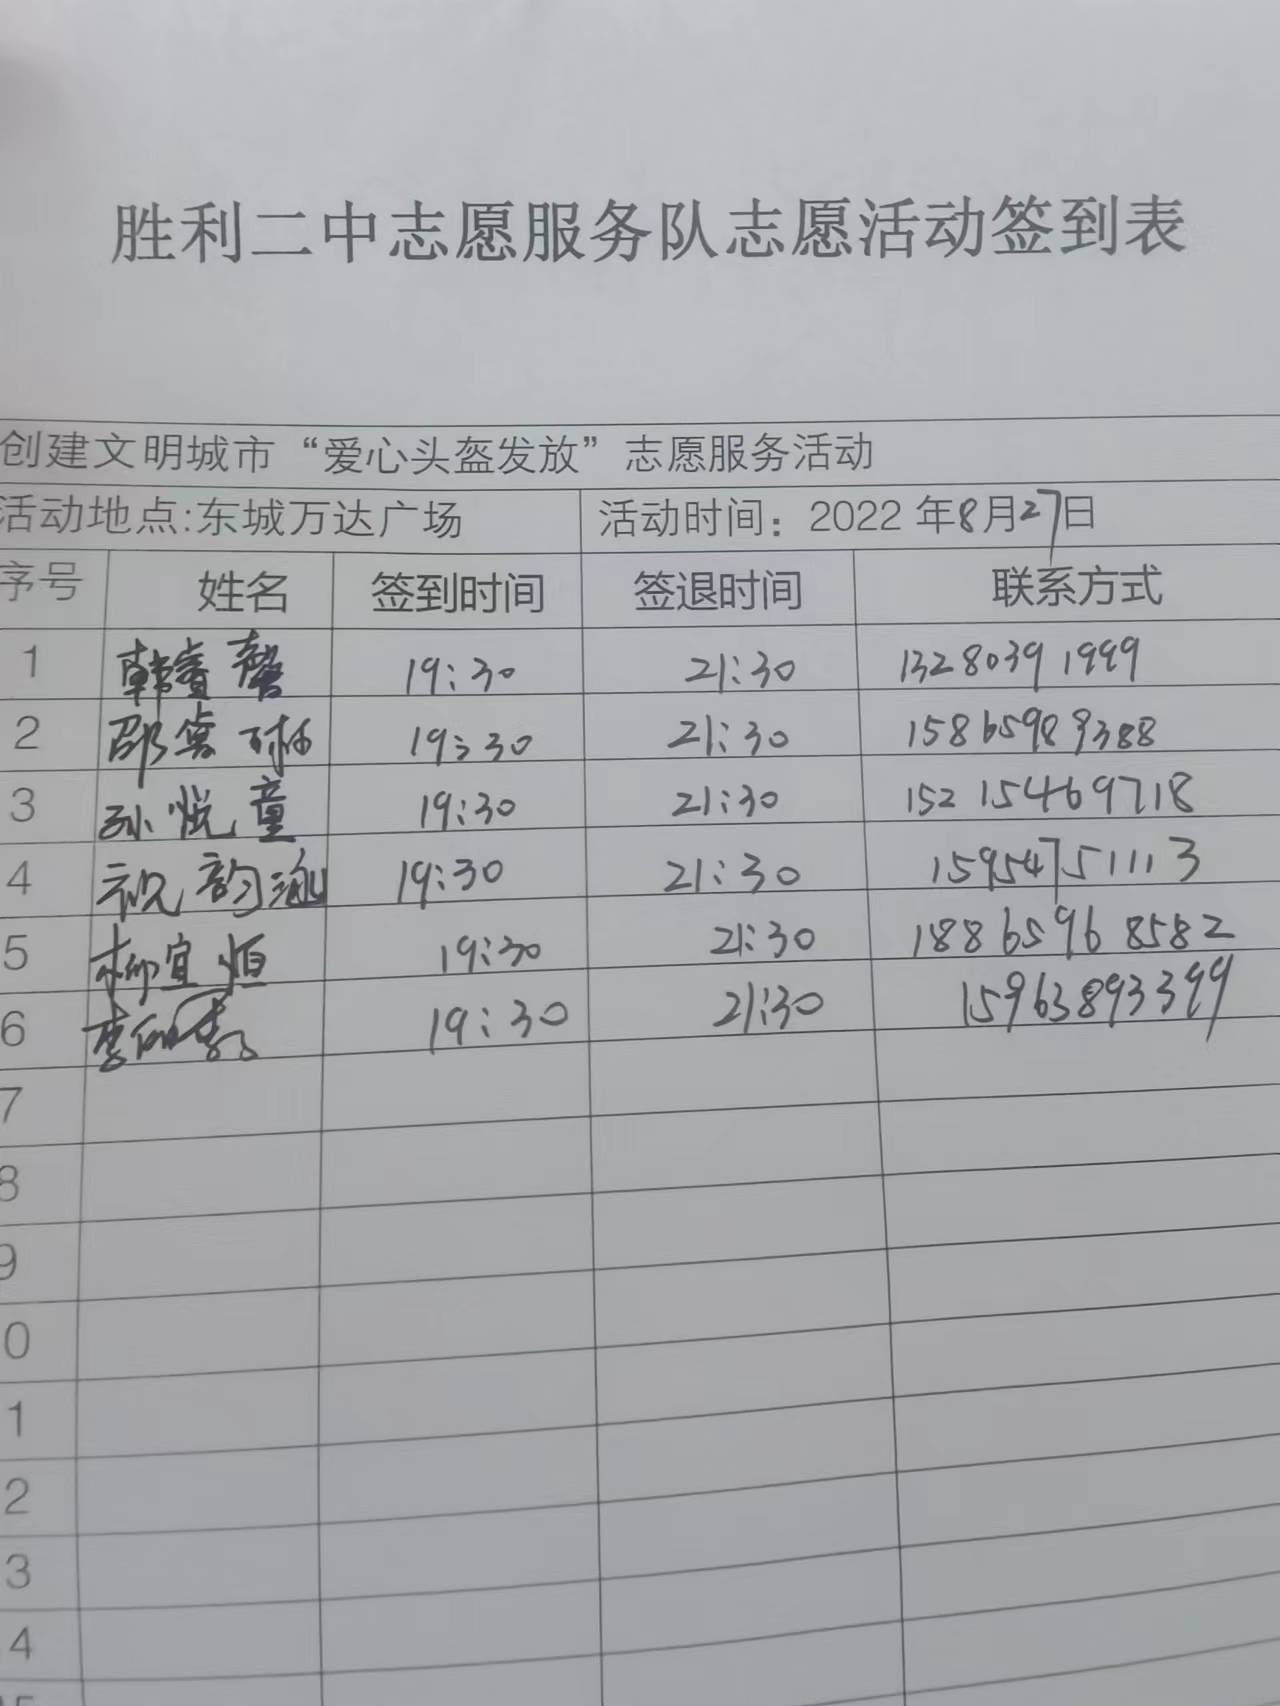 胜利二中志愿服务队志愿活动签到表
创建文明城市“爱心头盔发放”志愿服务活动
活动地点:东城万达广场 活动时间：2022 年8月27日
序号 姓名 签到时间 签退时间 联系方式
1 韩睿馨 19:30 21:30 13280391999
2 邵 19:30 21:30 15865989388
3 孙悦童 19:30 21:30 15215469718
4 祝韵涵 19:30 21:30 15954751113
5 柳宜恒 19:30 21:30 18865968582
6 李 19:30 21:30 15963893399
7
8
9
0
1
2
3
4